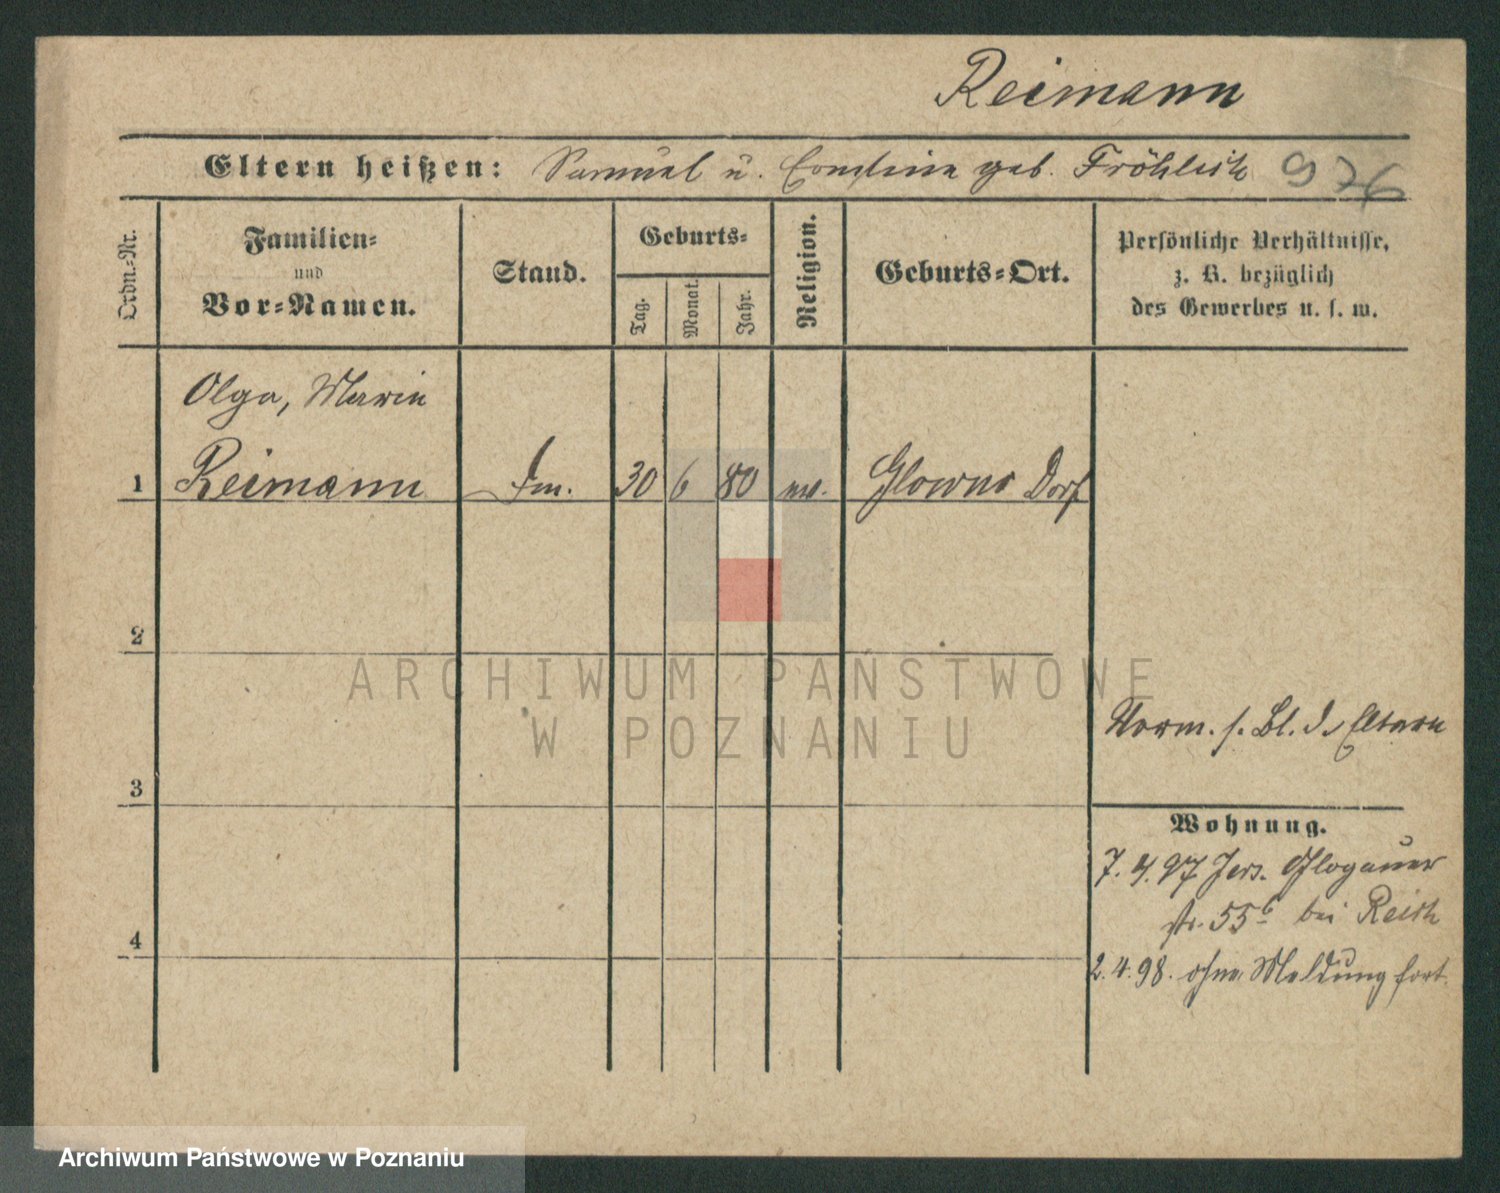 Reimann
Eltern heißen: Samuel u. geb. Fröhlich 976
Ordn.-Nr.
Familien-
und
Vor-Namen.
Stand.
Geburts-
Tag.
Monat.
Jahr.
Religion.
Geburts-Ort.
Persönliche Verhältnisse,
z. B. bezüglich
des Gewerbes u. s. w.
Olga, Marie
1 Reimann 30 6 80 ev. Glowno Dorf
2
3
4
Vorm. s. Bl. d. Eltern
Wohnung.
7. 4. 97 Jers. Glogauer
str. 55 b bei Reich
2. 4. 98. ohne Meldung fort.
ARCHIWUM PAŃSTWOWE
W POZNANIU
Archiwum Państwowe w Poznaniu